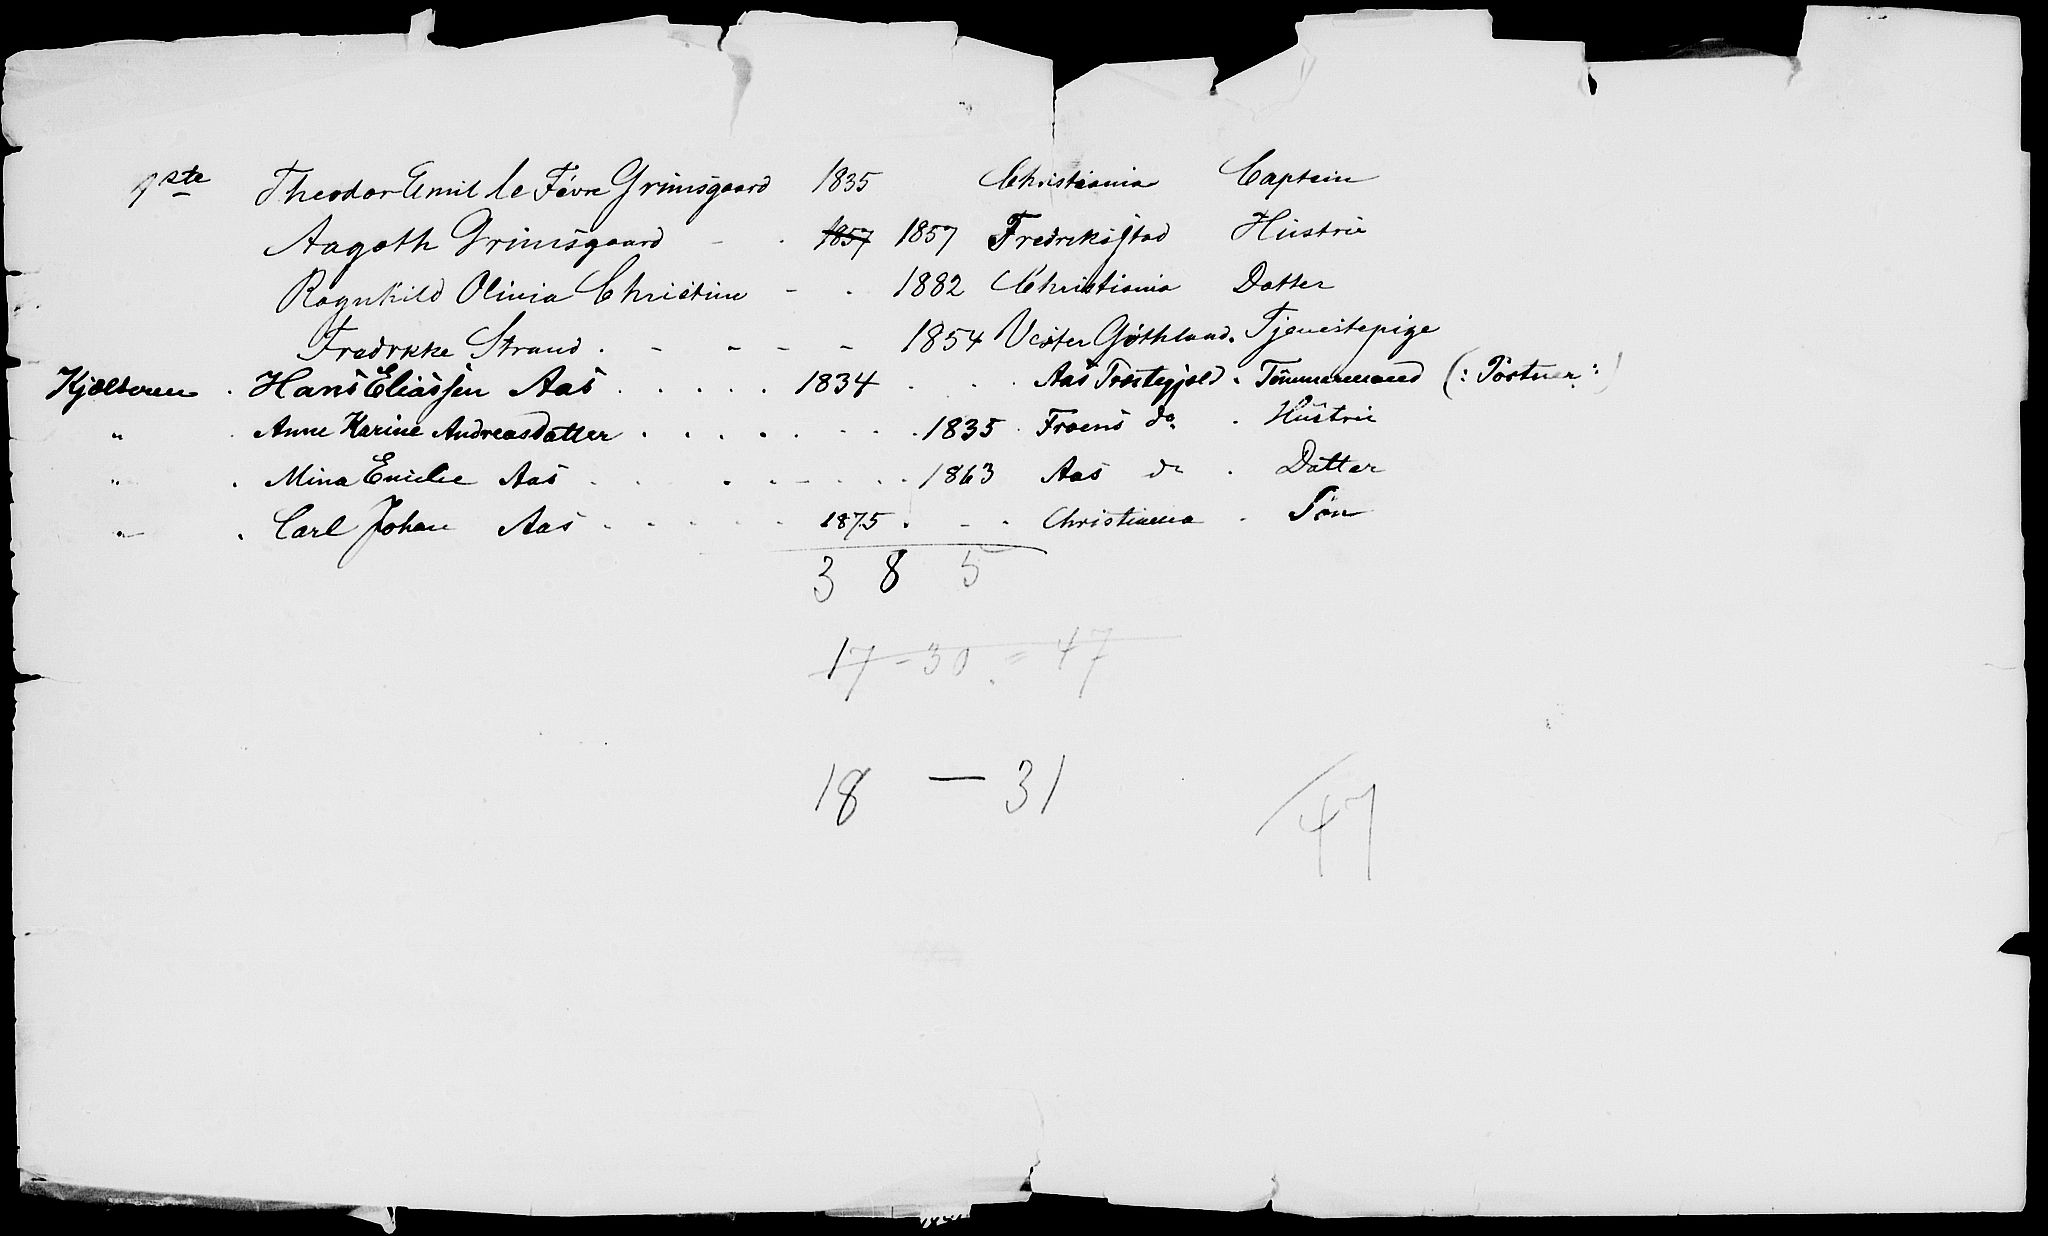 1ste Theodor Emil le Févre Grimsgaard 1835 Christiania Captein
Aagoth Grimsgaard - . 1857 1857 Fredrikstad Hustrü
Ragnhild Olivia Christine - . 1882 Christiania Datter
Fredrikke Strand . - - - - 1854 Vester Gøthland. Tjenestepige
Kjelderen . Hans Eliassen Aas . . . . . 1834 . . . Aas Præstegjeld . Tømmermand (: Portner :)
" . Anne Karine Andreasdatter . . . . . . . . 1835 . Froens do . Hustrü
" . Mina Emilie Aas . . . . - . . . 1863 Aas do . Datter
" . Carl Johan Aas . . . . . 1875 . - . Christiania . Søn
3 8 5
17 - 30 = 47
18 — 31
/47